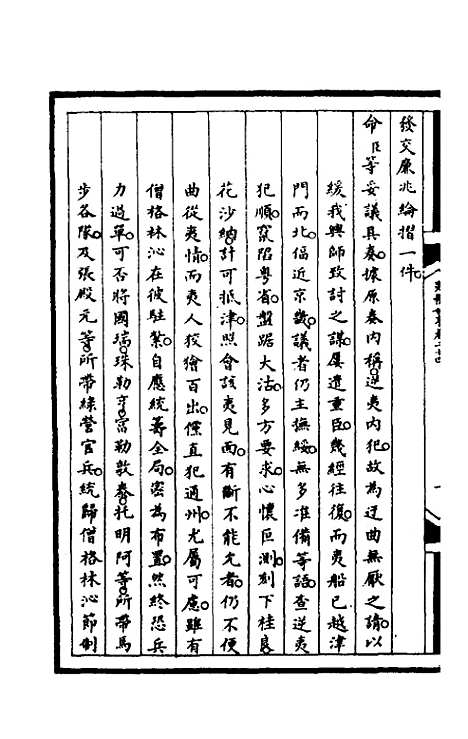 發交廉兆綸摺一件。
命臣等妥議具奏。據原奏內稱。逆夷內犯。故為迂曲無厭之請。以
緩我興師致討之謀。屢遣重臣。幾經往復。而夷船已越津
門而北。偪近京畿。議者仍主撫綏。無多准備等語。查逆夷
犯順。窟陷粵省。盤踞大沽。多方要求。心懷叵測。刻下桂良
花沙納。計可抵津。照會該夷見面。有斷不能允者。仍不便
曲從夷情。而夷人狡獪百出。儻直犯通州。尤屬可慮。雖有
僧格林沁在彼駐紮。自應統籌全局。密為布置。然終恐兵
力過單。可否將國瑞。珠勒亨。富勒敦泰。托明阿等。所帶馬
步各隊。及張殿元等。所帶綠營官兵。統歸僧格林沁節制